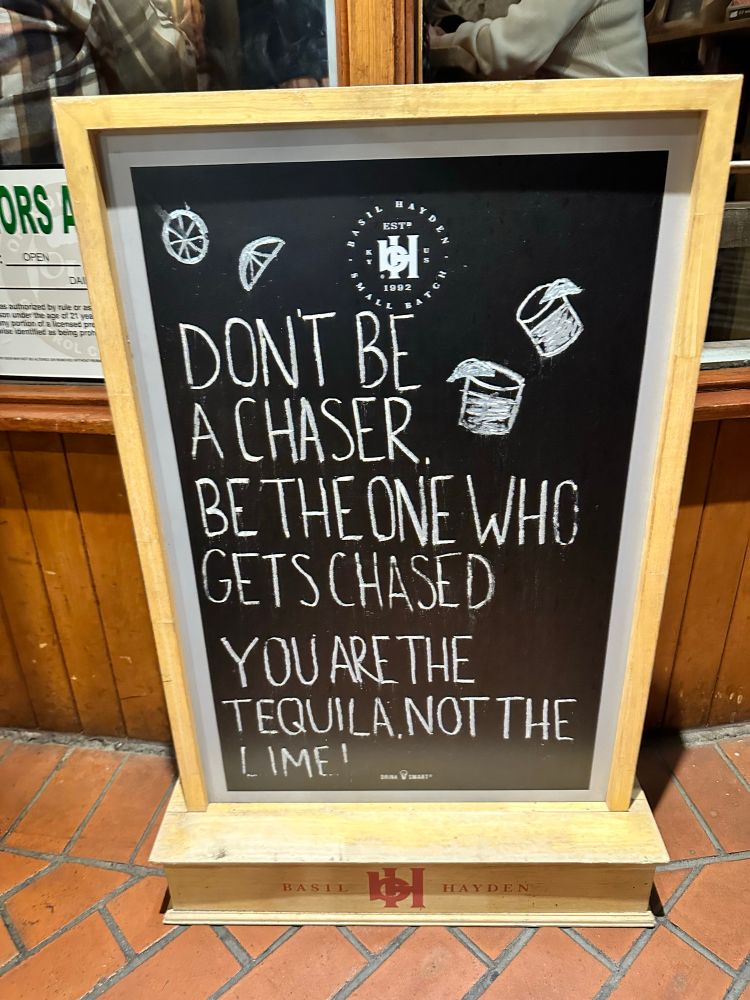 ORS A
OPEN
DAI
as authorized by rule or as
son under the age of 21 yea
ny portion of a licensed pre
wise identified as being proh
BASIL HAYDEN
ESTD
KY US
BH
1992
SMALL BATCH
DON'T BE
A CHASER.
BE THE ONE WHO
GETS CHASED
YOU ARE THE
TEQUILA, NOT THE
LIME!
DRINK SMART®
BASIL BH HAYDEN